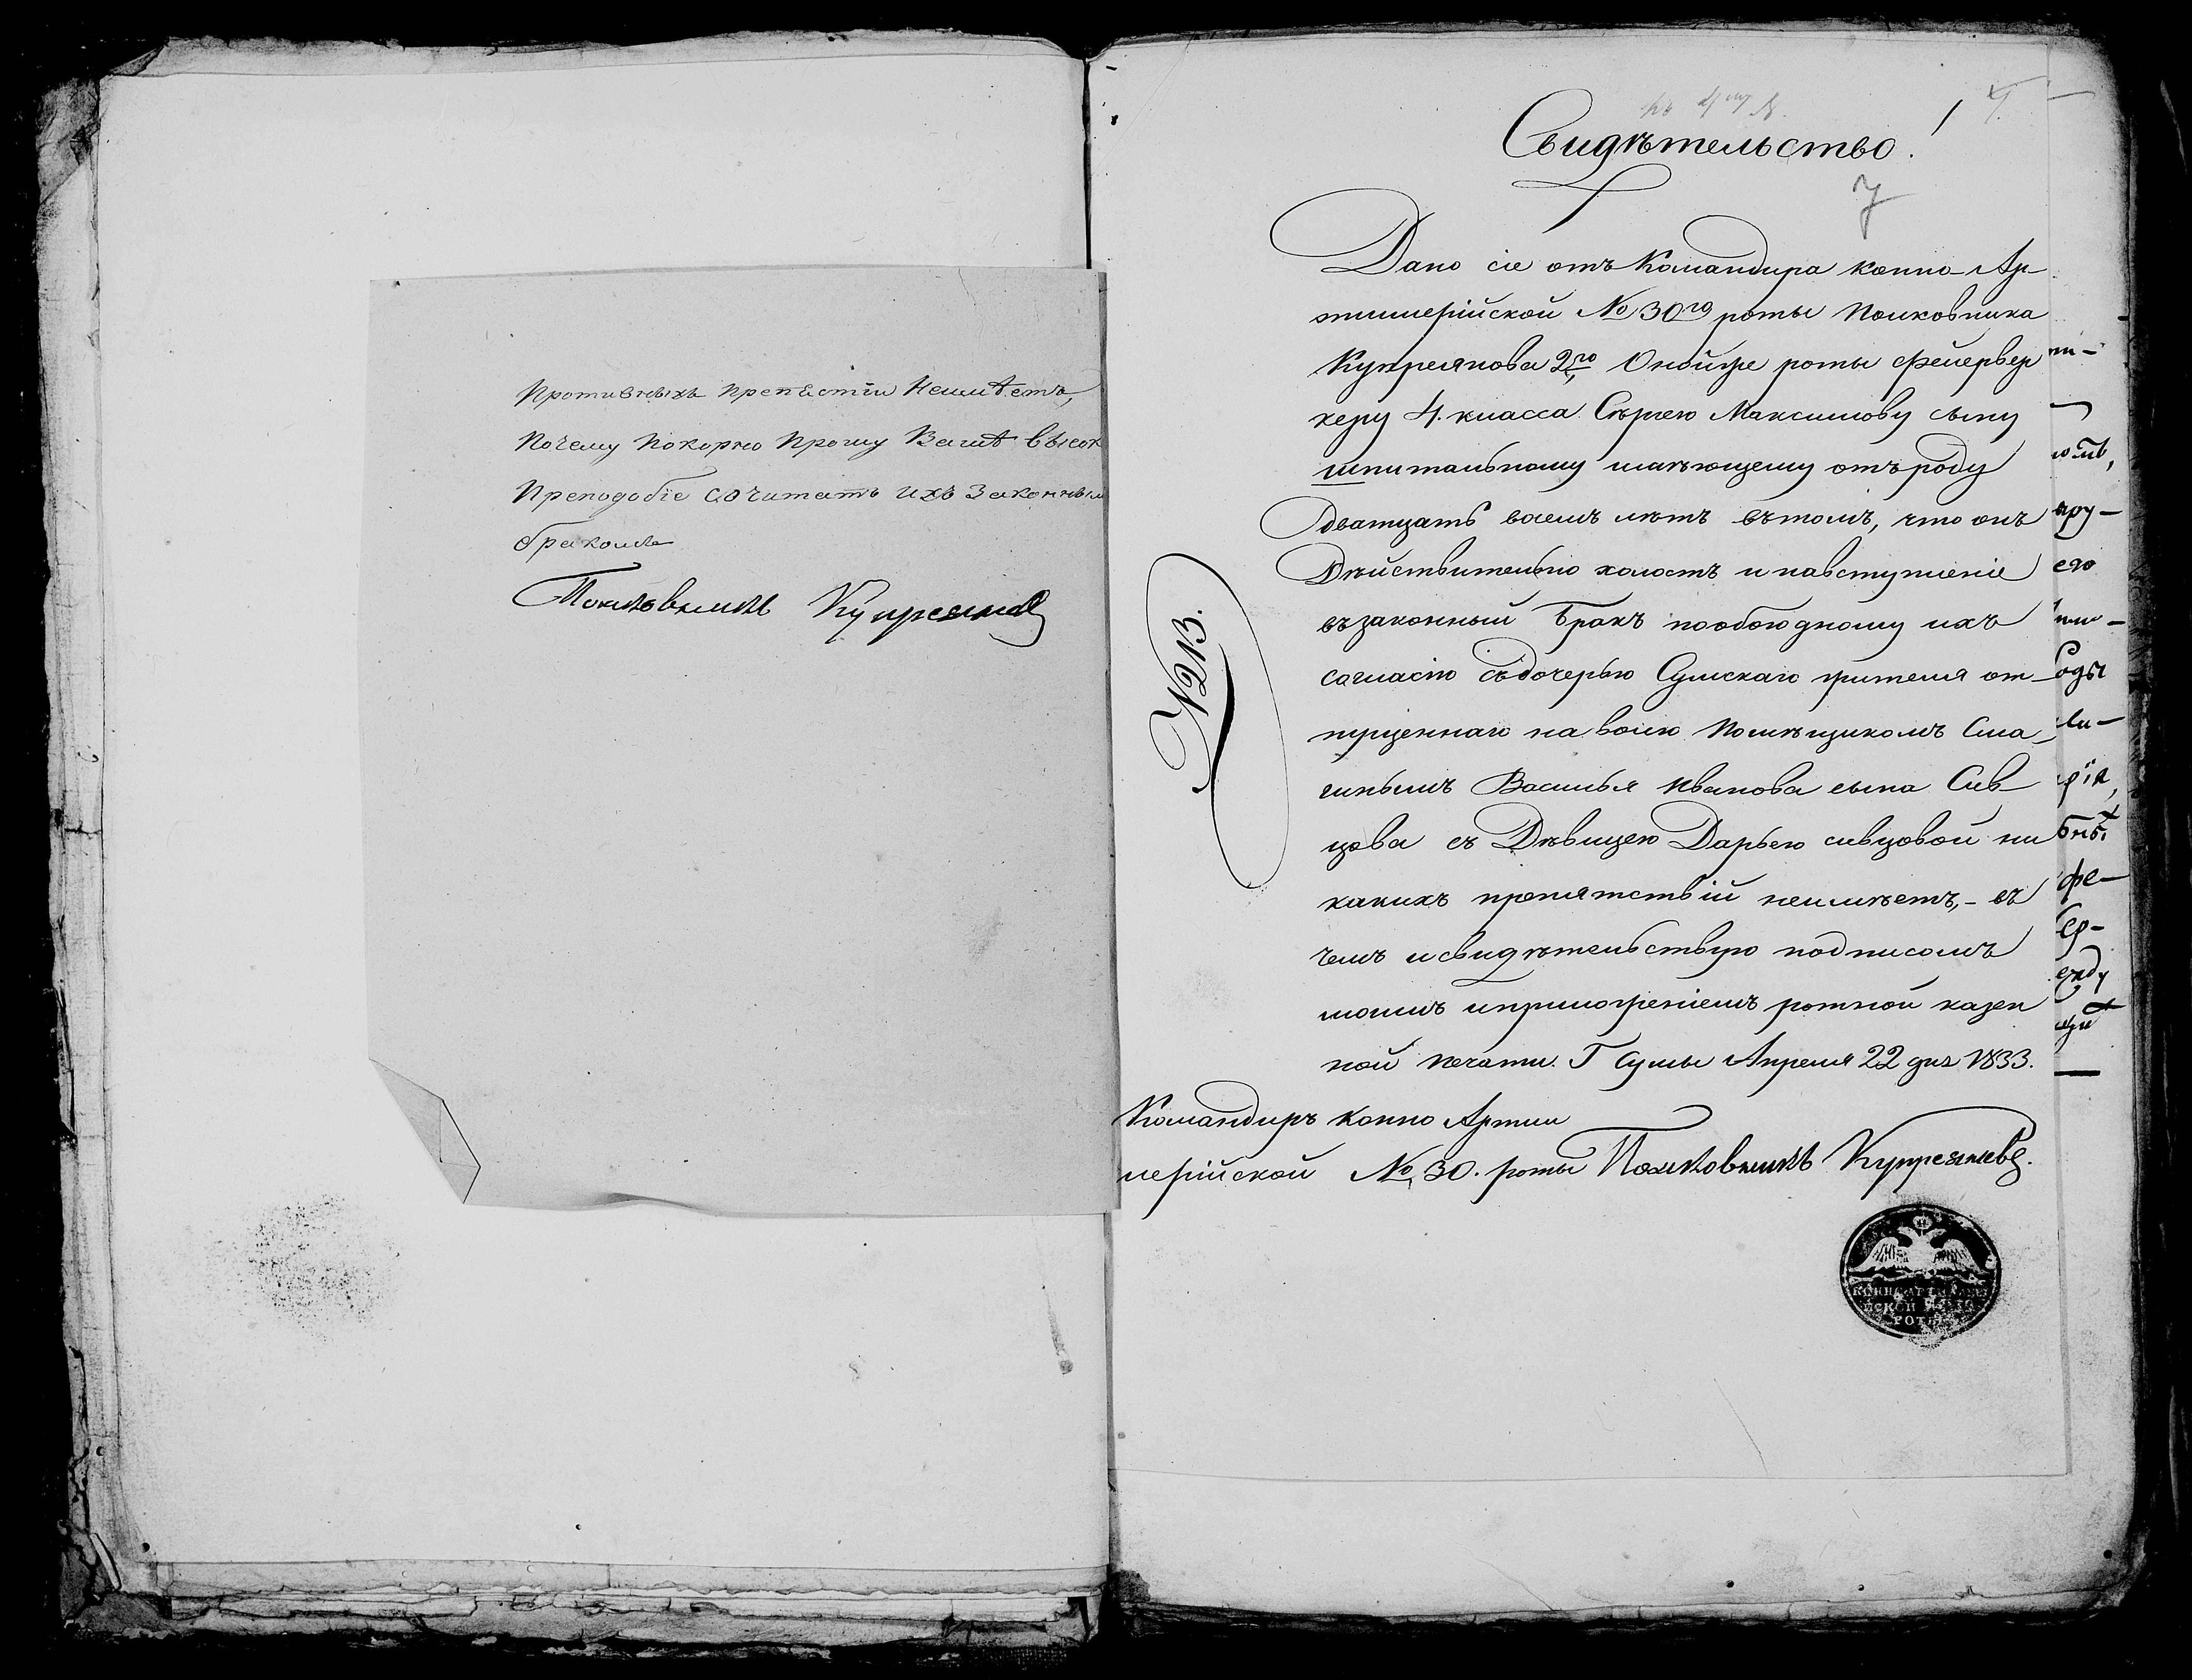 противныхъ препѣстіи неимѣетъ,
почему покорно прошу Вашѣ высок
преподобіе сочитать ихъ законным
бракомъ
Полковникъ Купреяновъ
Свидѣтельство.
7
Дано сіе отъ Командира конно-Ар-
тиллерійской № 30го роты полковника
Купреянова 2го Онойже роты фейервер
керу 4. класса Сергею Максимову сыну
шпитальному имѣющему отъ роду
дватцать восемъ лѣтъ вътомъ, что онъ
Дѣйствительно холостъ и навступленіе
въ законный бракъ пообоюдному ихъ
согласію съдочерью Сумскаго жителя от
пущеннаго на волю помѣщикомъ Сма
гинымъ Василья Иванова сына Сив
цова съ Дѣвицею Дарьею сивцовой ни
какихъ препятствій неимѣетъ,- въ
чемъ и свидѣтельствую подписомъ
моимъ иприложеніемъ ротной казен
ной печати. Г Сумы Апреля 22 дня 1833.
№ 213.
Командиръ конно Артил
лерійской № 30. роты Полковникъ Купреяновъ.
КОННО АРТИЛЛЕРІ
ЙСКОЙ № 30
РОТЫ